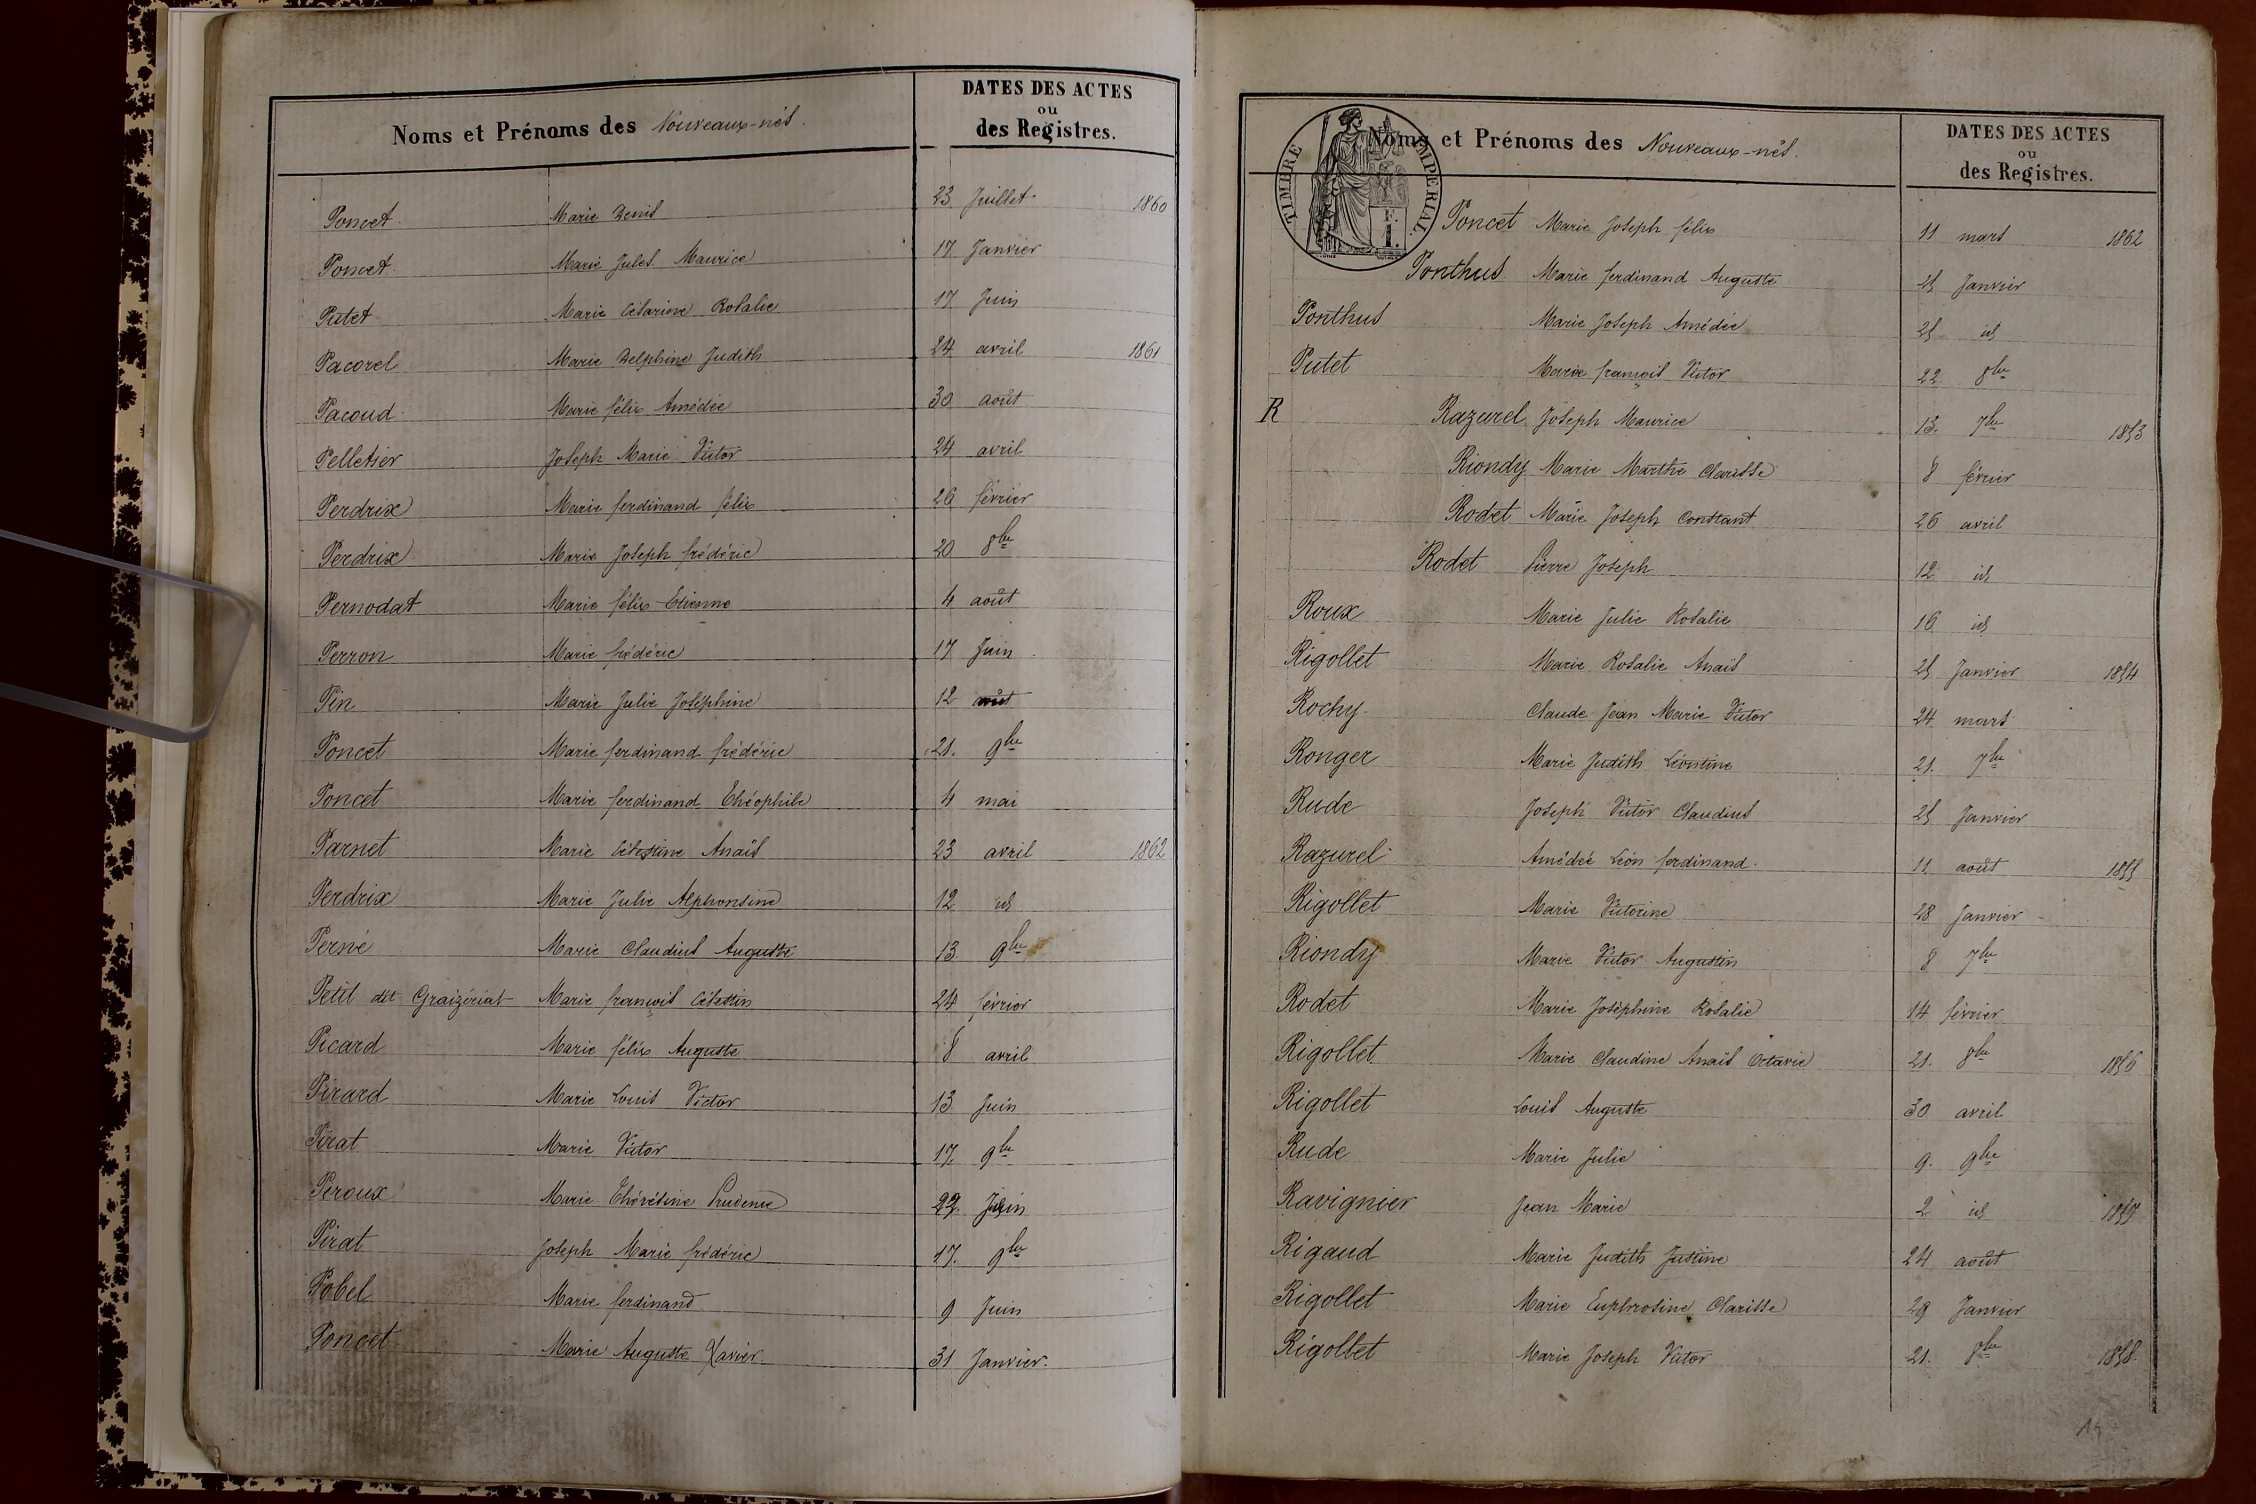 Noms et Prénoms des Nouveaux-nés.
DATES DES ACTES
ou
des Registres.
Poncet Marie Denis 23 Juillet 1860
Poncet Marie Jules Maurice 17 Janvier
Putet Marie Césarine Rosalie 17 Juin
Pacorel Marie Delphine Judith 24 avril 1861
Pacoud Marie félix Amédée 30 août
Pelletier Joseph Marie Victor 24 avril
Perdrix Marie ferdinand félix 26 février
Perdrix Marie Joseph frédéric 20 8bre
Pernodat Marie félix Etienne 4 août
Perron Marie frédéric 17 Juin
Pin Marie Julie Joséphine 12 août
Poncet Marie ferdinand frédéric 21. 9bre
Poncet Marie ferdinand Théophile 4 mai
Parnet Marie Célestine Anaïs 23 avril 1862
Perdrix Marie Julie Alphonsine 12 id
Perné Marie Claudius Auguste 13 9bre
Petit dit Graizériat Marie françois Célestin 24 février
Picard Marie félix Auguste 8 avril
Pirard Marie Louis Victor 13 Juin
Pirat Marie Victor 17. 9bre
Peroux Marie Thérésine Prudence 22. Juin
Pirat Joseph Marie frédéric 17. 9bre
Pobel Marie ferdinand 9 Juin
Poncet Marie Auguste Xavier 31 Janvier.
TIMBRE IMPERIAL
F.
1.
Noms et Prénoms des Nouveaux-nés.
DATES DES ACTES
ou
des Registres.
Poncet Marie Joseph félix 11 mars 1862
Ponthus Marie ferdinand Auguste 25 Janvier
Ponthus Marie Joseph Amédée 25 id
Putet Marie françois Victor 22 8bre
R Razurel Joseph Maurice 13. 7bre 1853
Riondy Marie Marthe Clarisse 8 février
Rodet Marie Joseph Constant 26 avril
Rodet Pierre Joseph 12 id
Roux Marie Julie Rosalie 16 id
Rigollet Marie Rosalie Anaïs 25 Janvier 1854
Rochy Claude Jean Marie Victor 24 mars
Ronger Marie Judith Léontine 21. 7bre
Rude Joseph Victor Claudius 25 Janvier
Razurel Amédée Léon ferdinand. 11 août 1855
Rigollet Marie Victorine 28 Janvier
Riondy Marie Victor Augustin 8 7bre
Rodet Marie Joséphine Rosalie 14 février
Rigollet Marie Claudine Anaïs Octavie 21. 8bre 1856
Rigollet Louis Auguste 30 avril
Rude Marie Julie 9. 9bre
Ravignier Jean Marie 2 id 1857
Rigaud Marie Judith Justine 24 août
Rigollet Marie Euphrosine Clarisse 29 Janvier
Rigollet Marie Joseph Victor 21. 8bre 1858
15